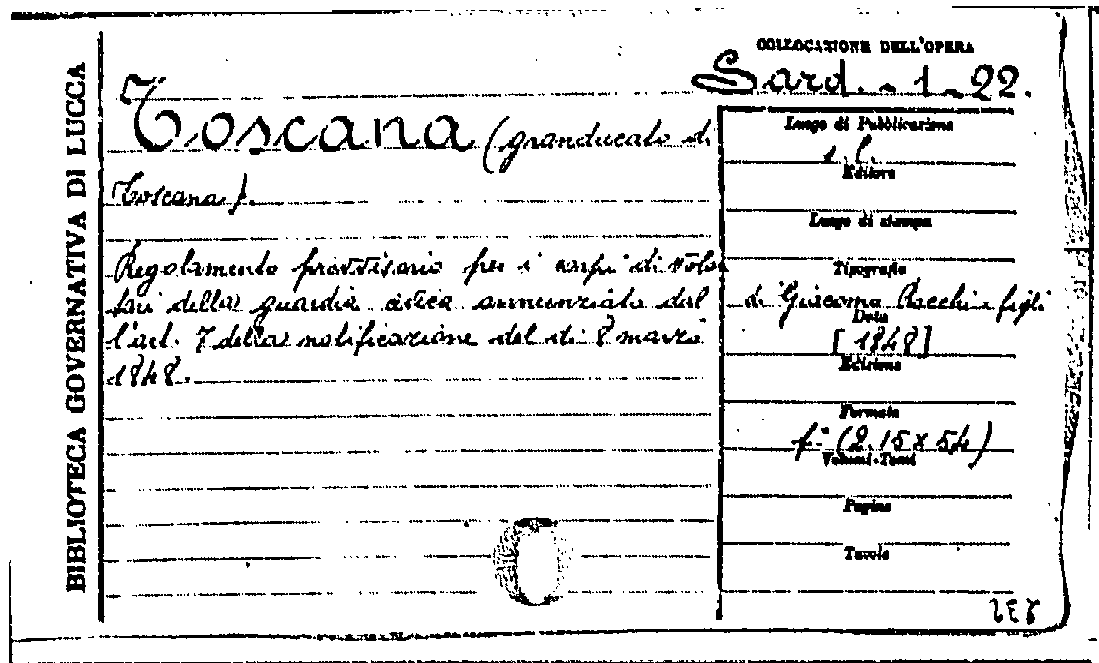 BIBLIOTECA GOVERNATIVA DI LUCCA
COLLOCAZIONE DELL'OPERA
Sard. - 1 - 22.
Toscana (granducato di
Toscana).
Regolamento provvisorio per i corpi di volon
tari della guardia civica annunziato dal
l'art. 7 della notificazione del dì 8 marzo
1848.
Luogo di Pubblicazione
s. l.
Editore
Luogo di stampa
Tipografia
di Giacomo Rocchi e figli
Data
[1848]
Edizione
Formato
f.° (2.15 x 54)
Volumi-Tomi
Pagine
Tavole